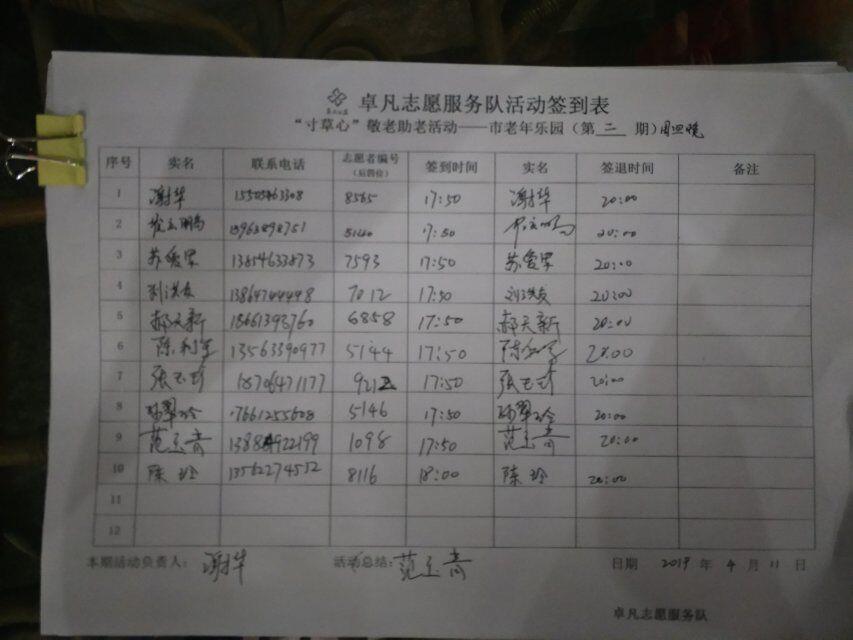 卓凡志愿服务队活动签到表
“寸草心”敬老助老活动——市老年乐园（第 二 期）周四晚
序号 实名 联系电话 志愿者编号（后四位） 签到时间 实名 签退时间 备注
1 谢华 15505463308 8565 17:50 谢华 20:00
2 5140 17:50 20:00
3 苏爱军 13854633873 7593 17:50 苏爱军 20:00
4 刘洪友 13864744498 7012 17:50 刘洪友 20:00
5 郝天新 18661393760 6858 17:50 郝天新 20:00
6 陈利军 13563390977 5144 17:50 陈利军 20:00
7 张玉珍 18706471177 9212 17:50 张玉珍 20:00
8 5146 17:50 20:00
9 范玉青 1098 17:50 范玉青 20:00
10 陈玲 13562274512 8116 18:00 陈玲 20:00
11
12
本期活动负责人： 谢华 活动总结： 范玉青 日期 2019 年 4 月 11 日
卓凡志愿服务队